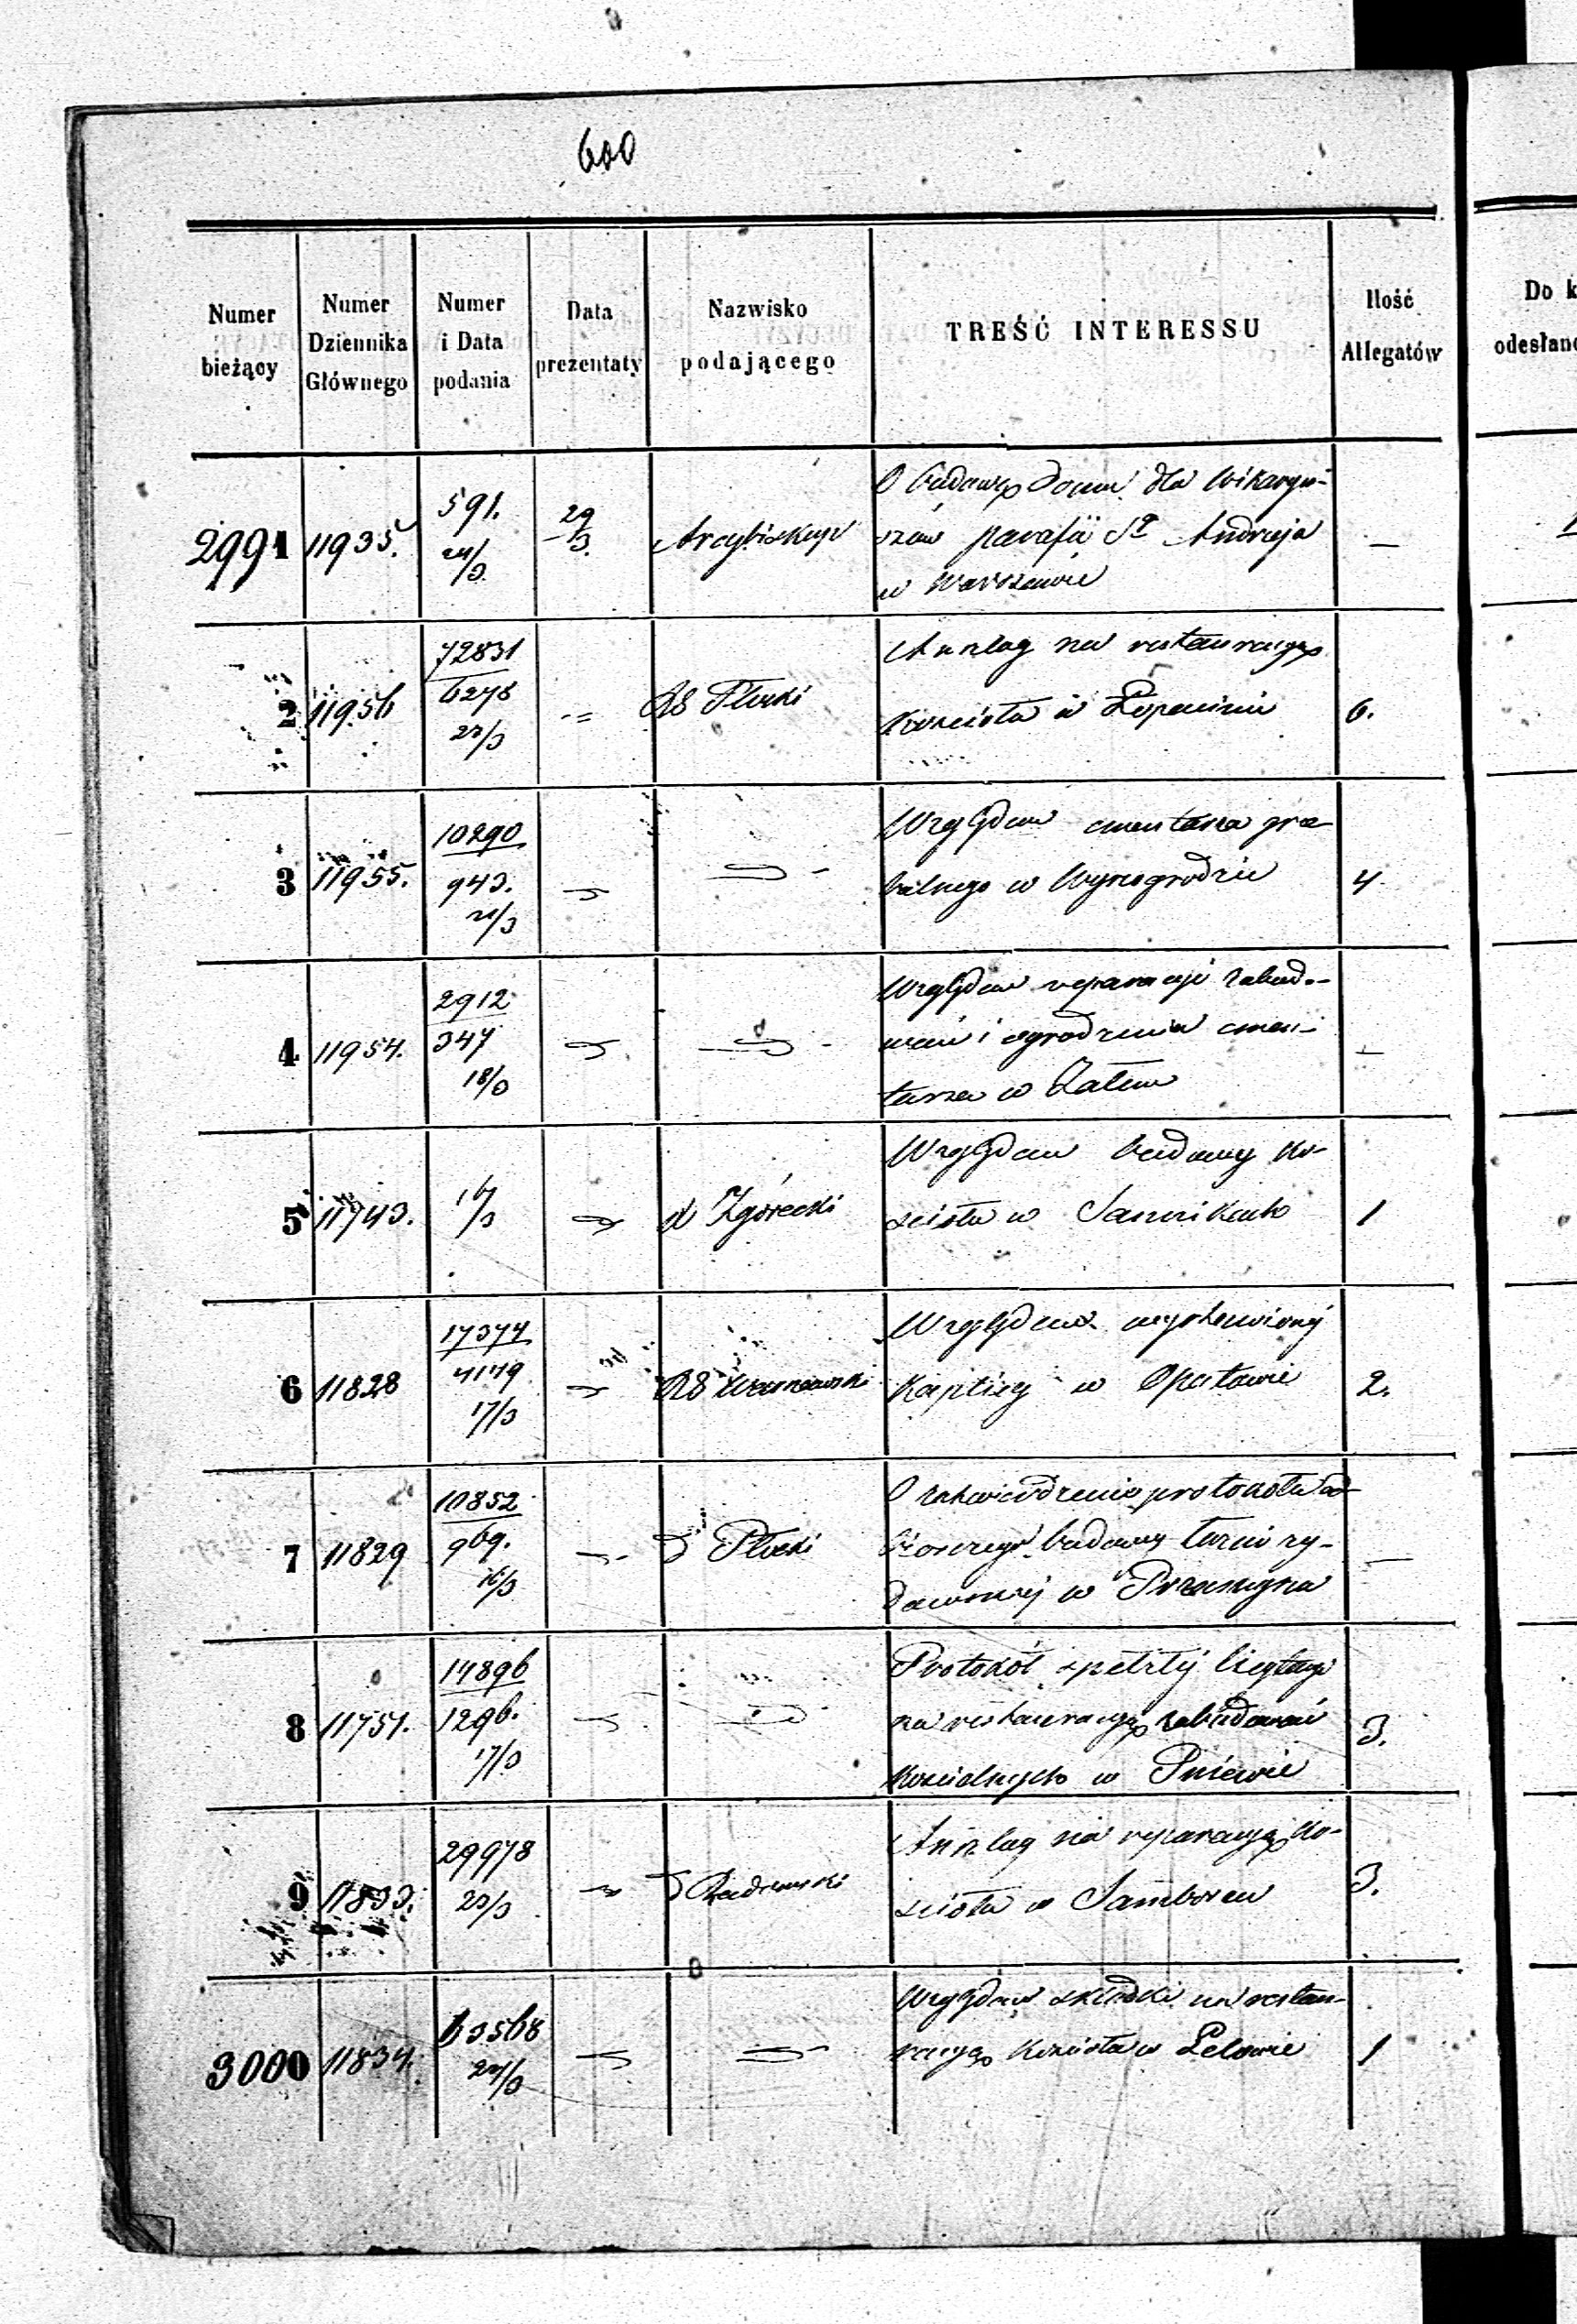 600
Numer bieżący
Numer Dziennika Głównego
Numer i Data podania
Data prezentaty
Nazwisko podającego
TREŚĆ INTERESSU
Ilość Allegatów
Do k
odesłano
2991 11935. 591. 24/3 29/3. Arcybiskup
O budowę Domu dla Wikaryu-
szów parafii Sgo Andrzeja
w Warszawie
—
2 11956 72831 6278 23/3 RG Płocki
Anszlag na restauracyę
Kościoła w Łopacinie
6.
3 11955. 10290 943. 20/3
Względem cmentarza grze-
balnego w Wyszogrodzie
4
4 11954. 2912 347 18/3
Względem reparacyi zabudo-
wań i ogrodzenia cmen-
tarza w
—
5 11743. 16/3 X Zgórecki
Względem budowy Ko-
ścioła w Sannikach
1
6 11828 17374 4149 17/3 RG Warszawski
Względem wystawionej
Kaplicy w Opatowie
2.
7 11829 10852 969. 16/3 D Płocki
O zatwierdzenie protokołu od-
biorczego budowy
w Przasnyszu
—
8 11751. 14896 1296. 17/3
Protokół spełzłej licytacyi
na restauracyę zabudowań
Kościelnych w Pniewie
3.
9 11833. 29978 23/3 D Radomski
Anszlag na reparacyę Ko-
ścioła w Samborcu
3.
3000 11834. 63568 24/3
Względem składki na restau-
racyę Kościoła w Lelowie
1